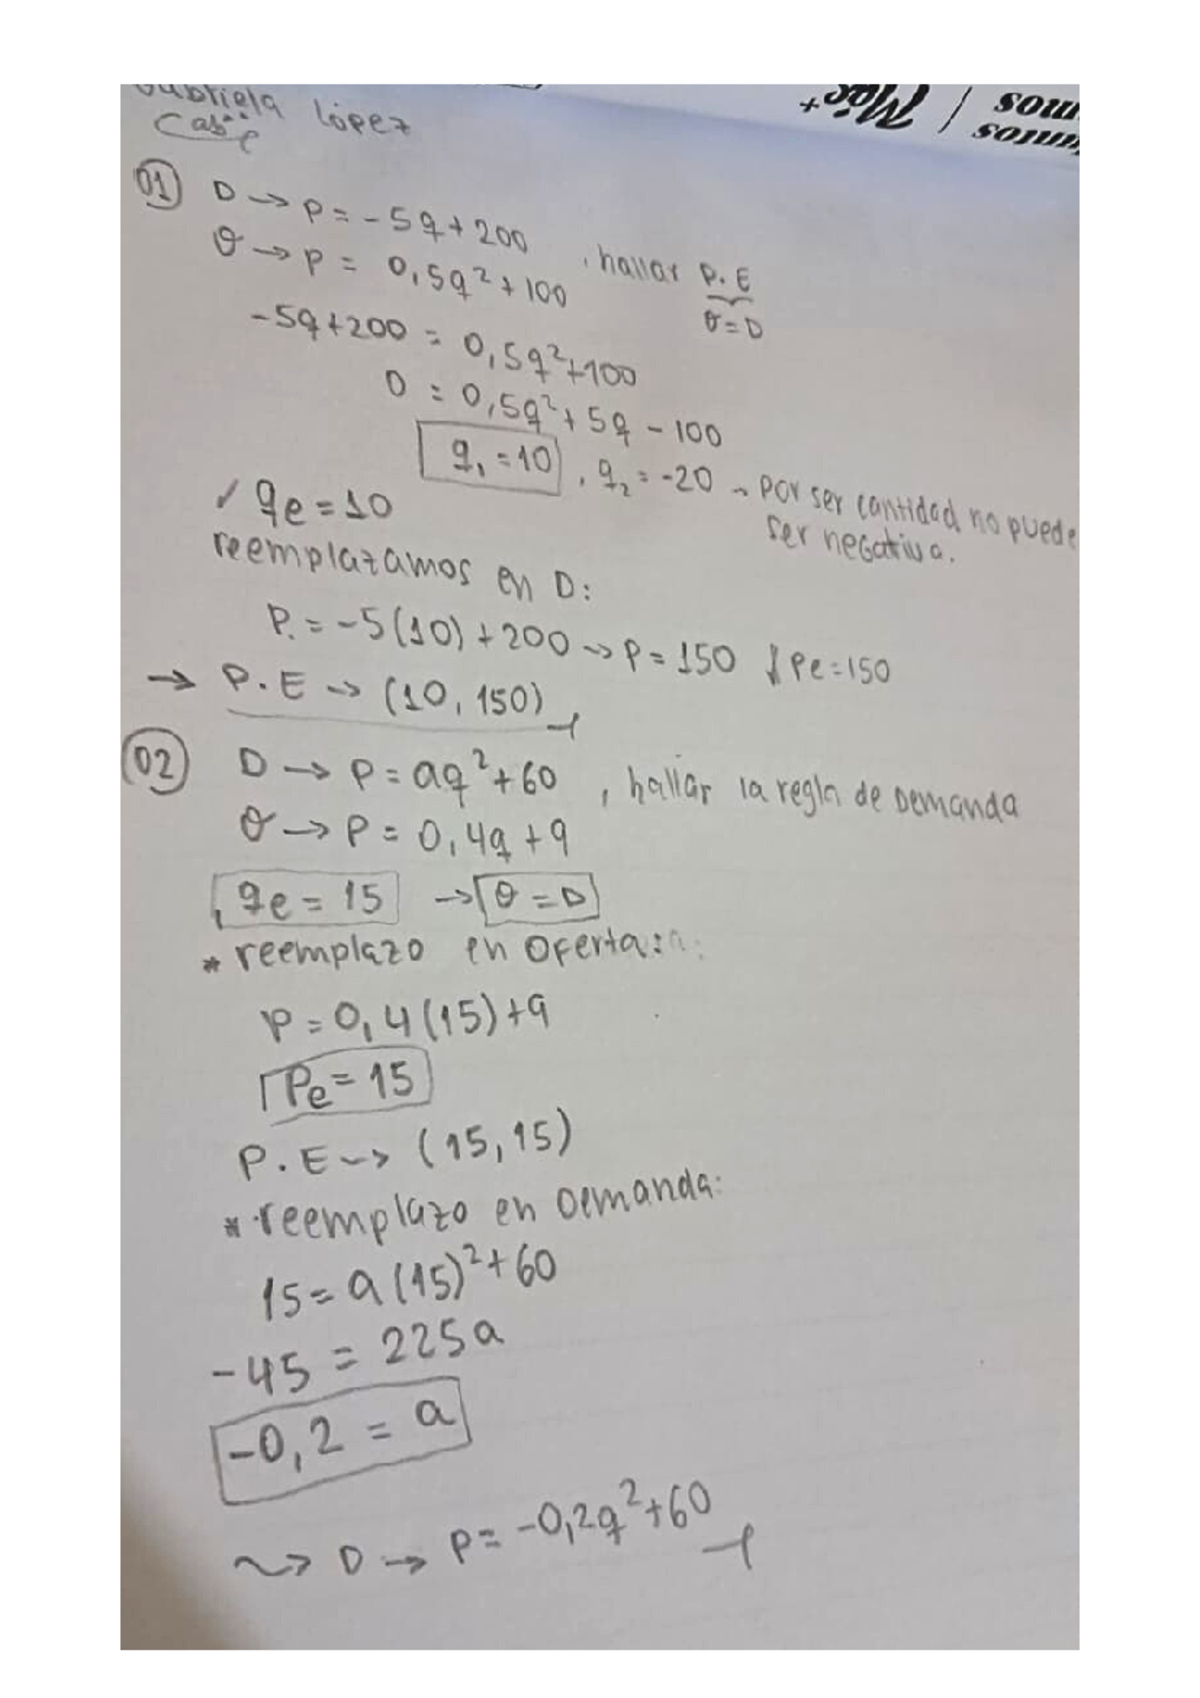 Gabriela López
Más+
mos
untos
01 D → P = -5q + 200
θ → P = 0,5q² + 100 , hallar P.E
θ = D
-5q + 200 = 0,5q² + 100
0 = 0,5q² + 5q - 100
q₁ = 10 , q₂ = -20 → por ser cantidad no puede
ser negativa.
✓ qe = 10
reemplazamos en D:
P. = -5(10) + 200 → P = 150 ✓ Pe = 150
→ P.E → (10, 150)
02 D → P = aq² + 60 , hallar la regla de Demanda
θ → P = 0,4q + 9
, qe = 15 → θ = D
* reemplazo en Oferta:
P = 0,4(15) + 9
Pe = 15
P.E → (15, 15)
* reemplazo en Demanda:
15 = a(15)² + 60
-45 = 225a
-0,2 = a
→ D → P = -0,2q² + 60